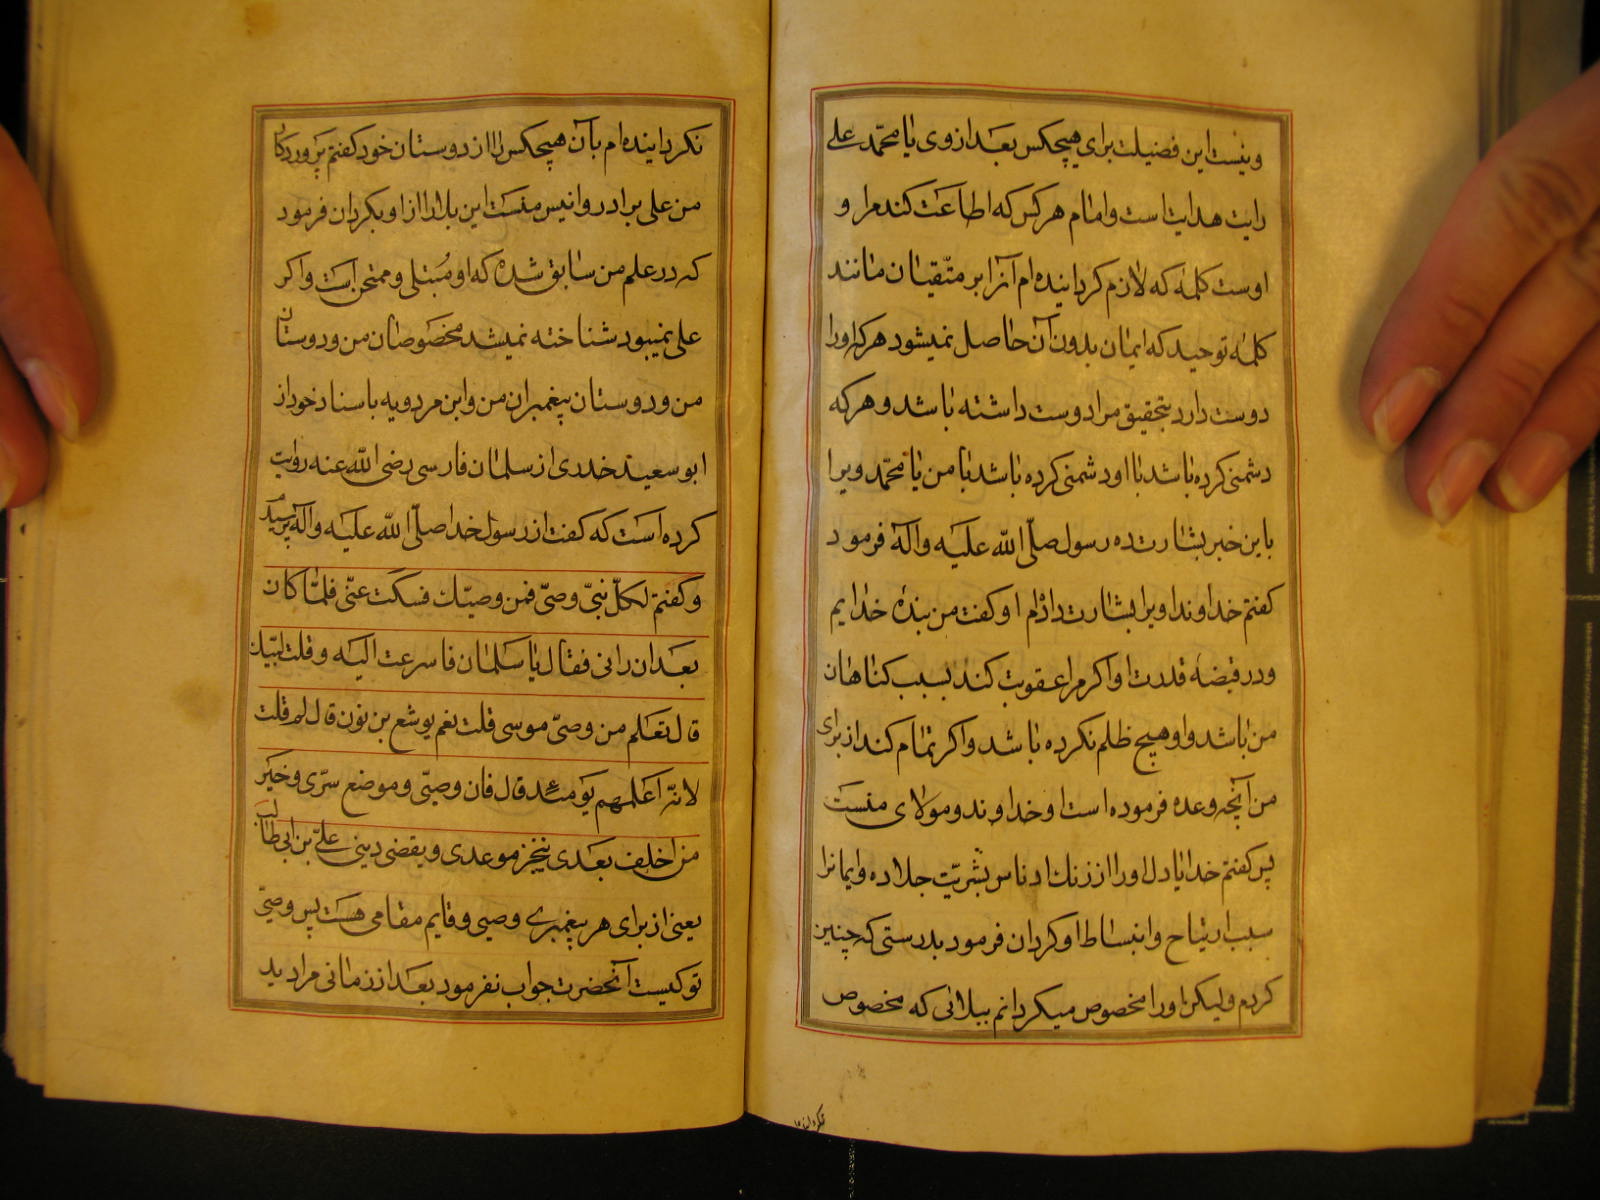 ونیست این فضیلت برای هیچکس بعد از وی یا محمّد علی
رایت هدایتست وامام هر کس که اطاعت کند مرا و
اوست کلمهٔ که لازم کرداینده ام آنرا بر متّقیان مانند
کلمهٔ توحید که ایمان بدون آن حاصل نمیشود هر که اورا
دوست دارد بتحقیق مرا دوست داشته باشد و هر که
دشمنی کرده باشد با او دشمنی کرده باشد با من یا محمّد ویرا
باین خبر بشارت ده رسول صلّی الله علیه وآله فرمود
کفتم خداوندا ویرا بشارت دادم او کفت من بندهٔ خدایم
ودر قبضهٔ قدرت او اکر مرا عقوبت کند بسبب کناهان
من باشد واو هیچ ظلم نکرده باشد واکر تمام کند از برای
من آنچه وعده فرموده است او خداوند ومولای منست
پس کفتم خدایا دل اورا از زنك ادناس بشریّت جلا ده وایمانرا
سبب ارتیاح وانبساط او کردان فرمود بدرستی که چنین
کردم ولیکن اورا مخصوص میکردانم ببلائی که مخصوص
نکرداینده ام بآن هیچکس را از دوستان خود کفتم پروردکارا
من علی برادر وانیس منست این بلا را از او بکردان فرمود
که در علم من سابق شده که او مُبتلی وممتحن است واکر
علی نمیبود شناخته نمیشد مخصوصان من ودوستان
من ودوستان پیغمبران من وابن مردویه باسناد خود از
ابو سعید خدری از سلمان فارسی رضی الله عنه روایت
کرده است که کفت از رسول خدا صلّی الله علیه وآله پرسیدم
وکفتم لکلّ نبیّ وصیّ فمن وصیّك فسکت عنّی فلمّا کان
بعد ان رانی فقال یا سلمان فاسرعت الیه وقلت لبّیك
قال تعلم من وصیّ موسی قلت نعم یوشع بن نون قال لم قلت
لانّه اعلمهم یومئذ قال فان وصیّی وموضع سرّی وخیر
من اخلف بعدی ینجز موعدی ویقضی دینی علیّ بن ابی طالب
یعنی از برای هر پیغمبرے وصیی وقایم مقامی هست پس وصیّ
تو کیست آنحضرت جواب نفرمود بعد از زمانی مرا دید